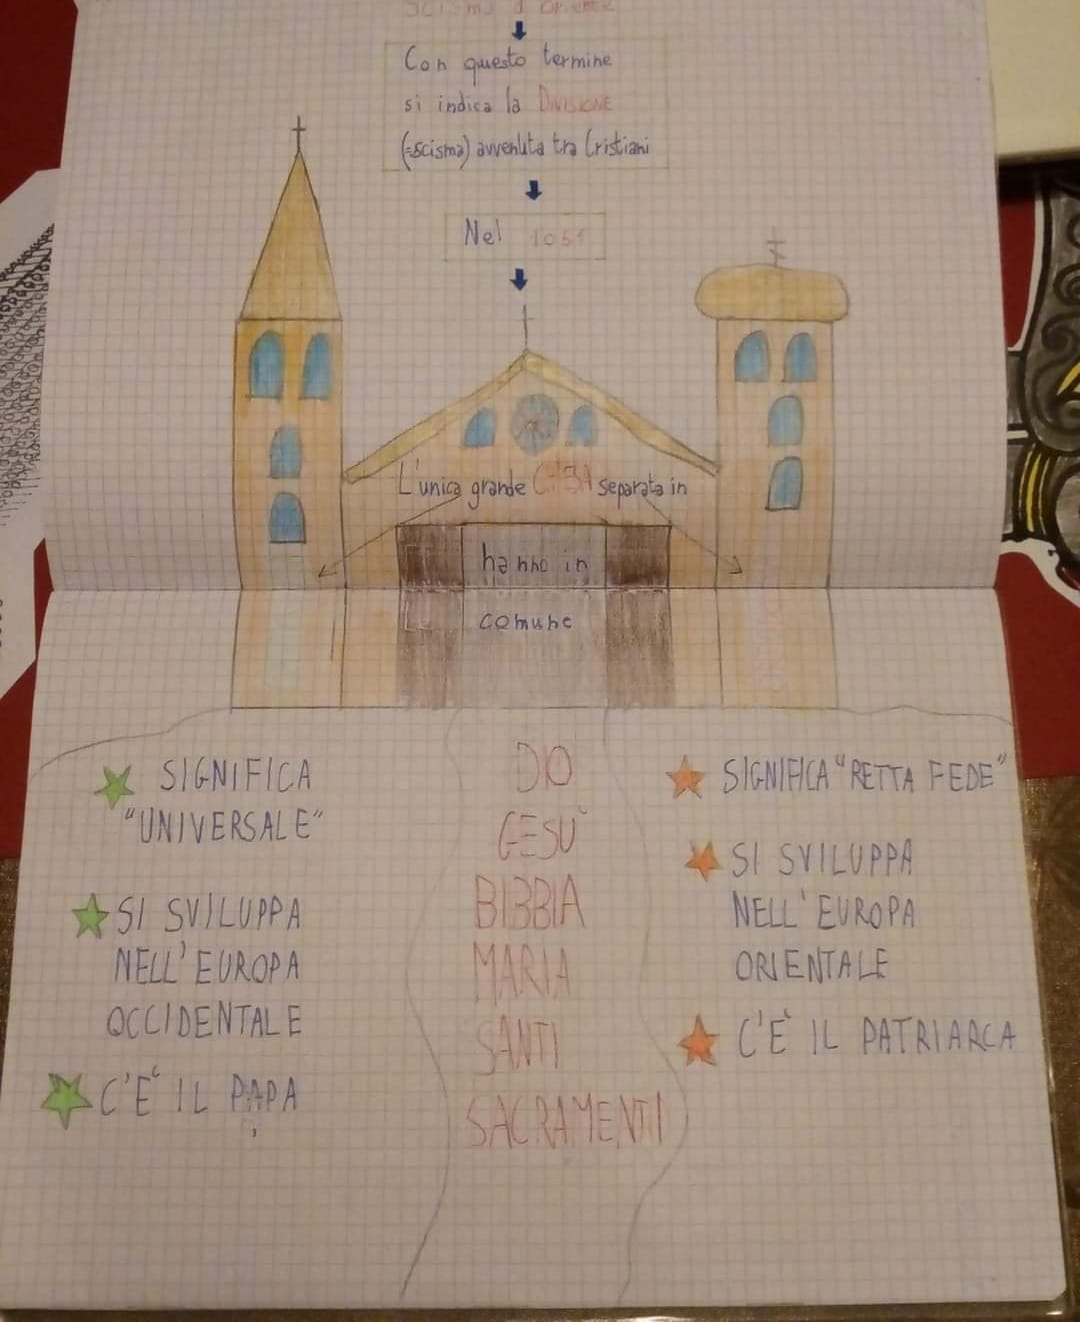 Scisma d'Oriente
Con questo termine
si indica la DIVISIONE
(=scisma) avvenuta tra Cristiani
Nel 1054
L'unica grande separata in
hanno in
comune
SIGNIFICA
"UNIVERSALE"
SI SVILUPPA
NELL'EUROPA
OCCIDENTALE
C'E' IL PAPA
DIO
GESU'
BIBBIA
MARIA
SANTI
SACRAMENTI
SIGNIFICA "RETTA FEDE"
SI SVILUPPA
NELL'EUROPA
ORIENTALE
C'E' IL PATRIARCA